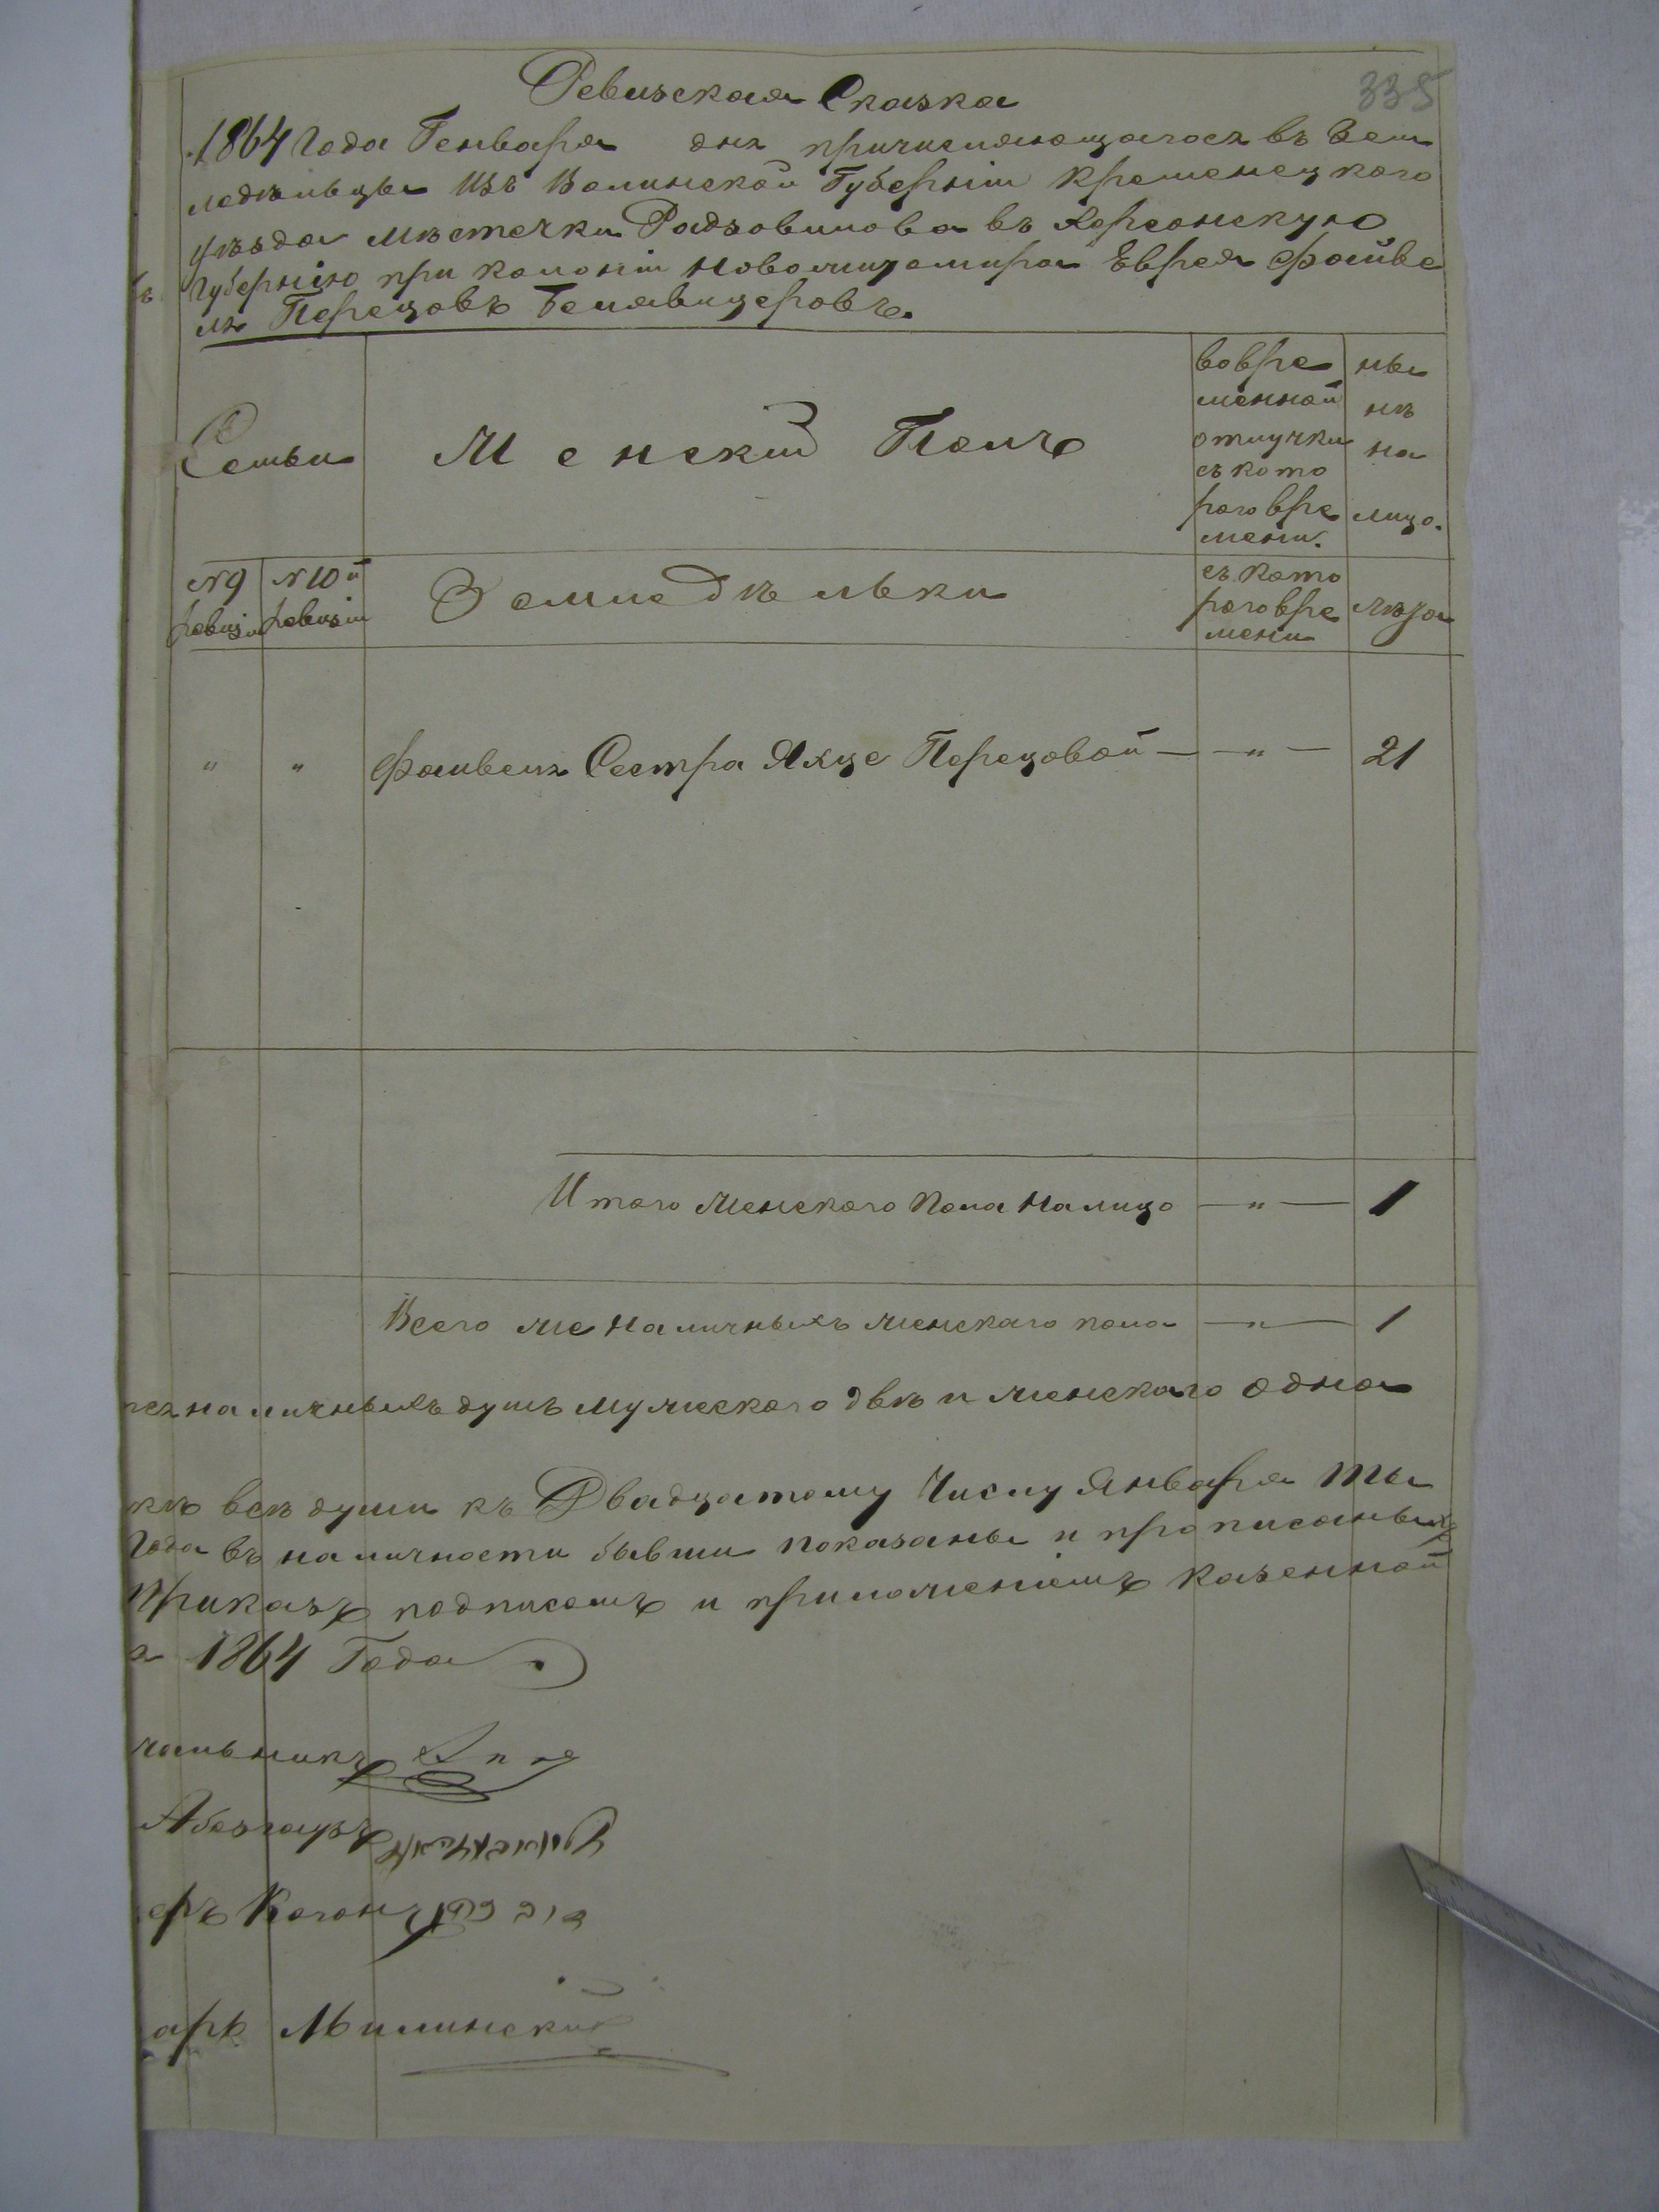 335
Ревизская Сказка
1864 Года Генваря дня причисляющагося въ Зем
ледѣльцы Изъ Волинской Губерніи Кременецкого
уѣзда мѣстечки Радзовилова въ Херсонскую
Губернію при колоніи Новожитомира Еврея Файве
ля Перецовъ Белявцеровъ
Семьи
Женский Полъ
во вре
менной
отлучки
съ кото
рого вре
мени.
ны
нѣ
на
лицо.
№ 9
ревизи
№ 10й
ревизіи
Земледѣльки
съ кото
рого вре
мени
лѣта
" " Файвеля Сестра Яхце Перецовой — " — 21
Итого Женского Пола Налицо — " — 1
Всего же Наличныхъ женскаго пола — " — 1
наличныхъ душъ мужеского двѣ и женскаго одна
всѣ души къ Двадцатому Числу Января Ты
Года въ наличности бывши показаны и прописаны
Приказъ подписомъ и приложеніемъ казенной
1864 Года
чальникъ
Абезгаузъ
еръ Коганъ
арь Милинский